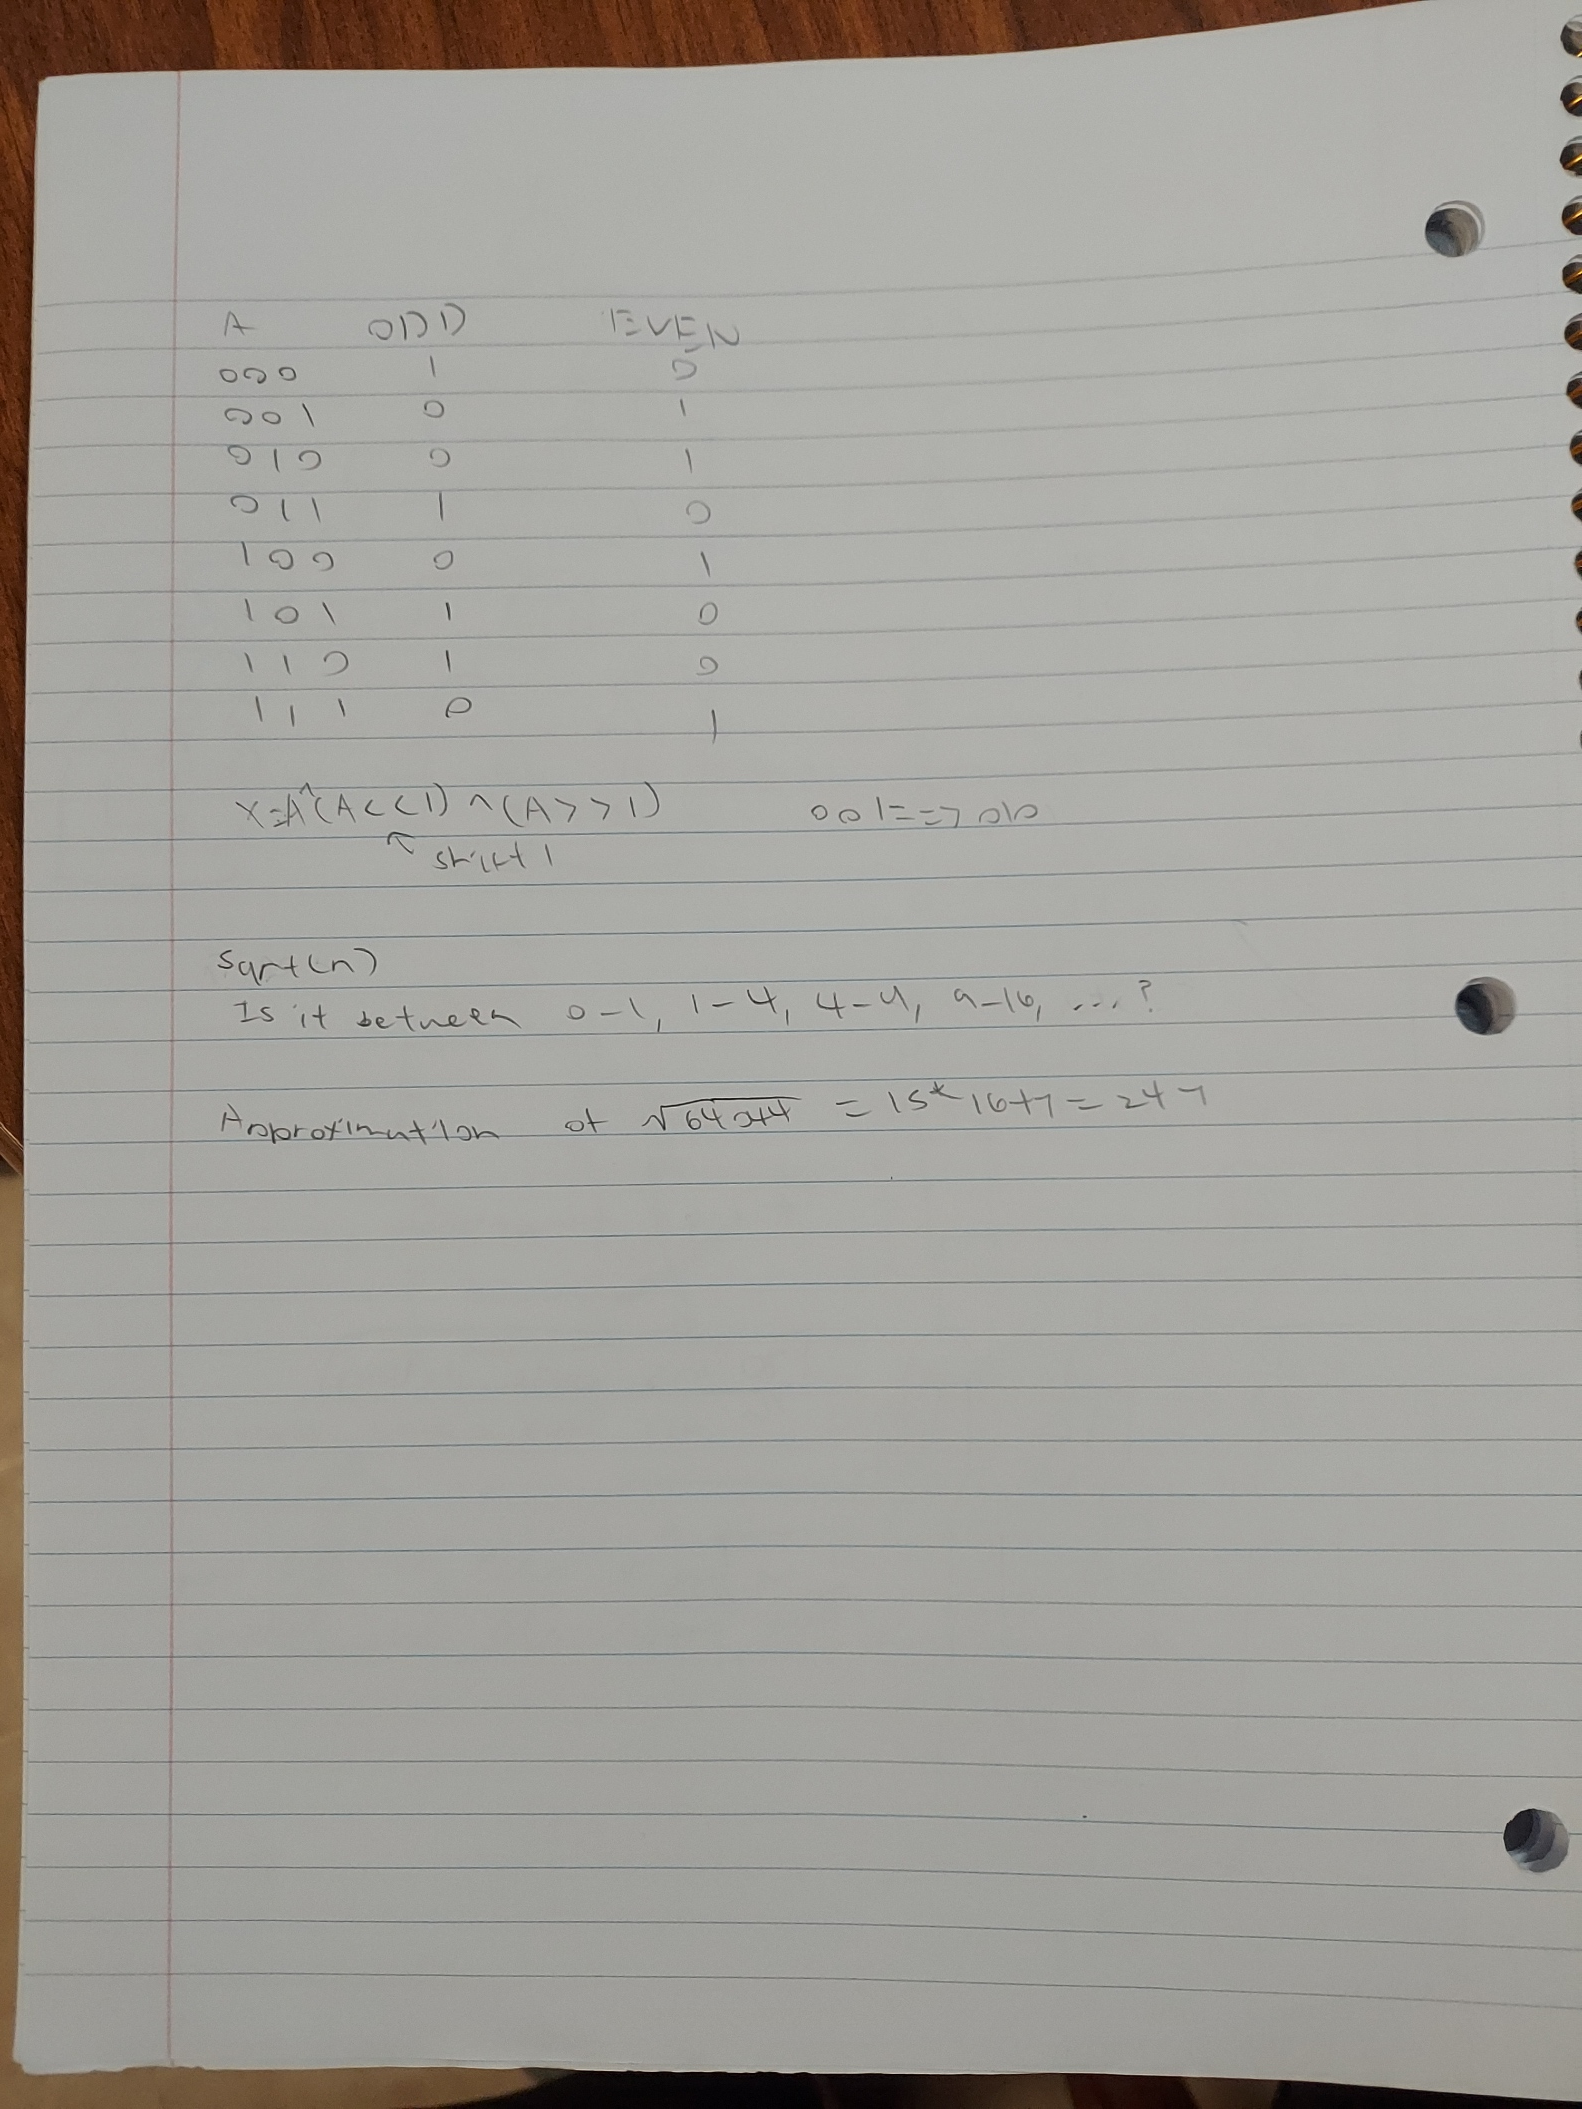 A ODD EVEN
000 1 0
001 0 1
010 0 1
011 1 0
100 0 1
101 1 0
110 1 0
111 0 1
X=A^(A<<1)^(A>>1) 001==>010
shift 1
Sqrt(n)
Is it between 0-1, 1-4, 4-9, 9-16, ...?
Approximation of = 15*16+7=247